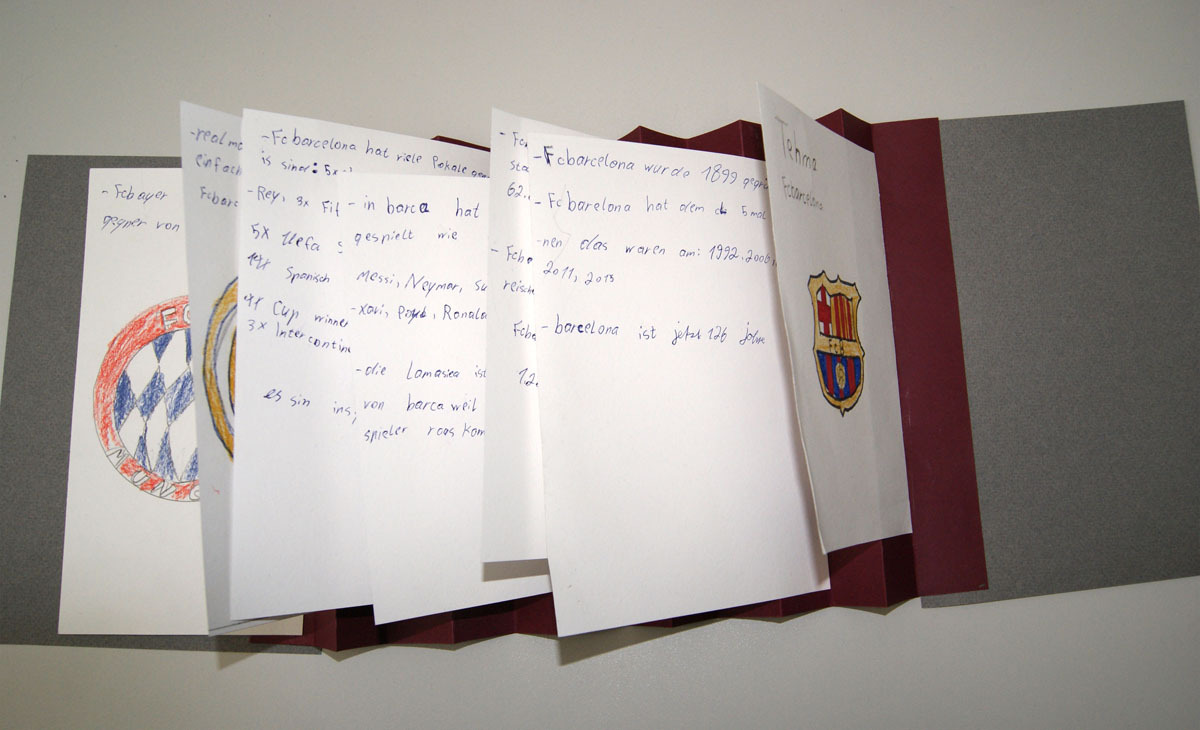 - Fcbayer
gegner von
FC
MUN
-real
einfach
Fcbarc
-Fcbarcelona hat viele Pokale
is sind: 5x
-Rey, 3x Fif
5X Uefa
Spanisch
4x Cup winner
3x Intercontine
es sin ins
- in barca hat
gespielt wie
Messi, Neymar, su
-xavi, Ronala
-die Lamasiea ist
von barca weil
spieler raus kom
- Fc
sta
62.
- Fcba
reische
Fcba
12.
-Fcbarcelona wurde 1899 gegrü
- Fcbarelona hat dem 5 mal
-nen das waren am: 1992, 2006
2011, 2015
-barcelona ist jetzt 126 jahre
Tehma
Fcbarcelona
FCB